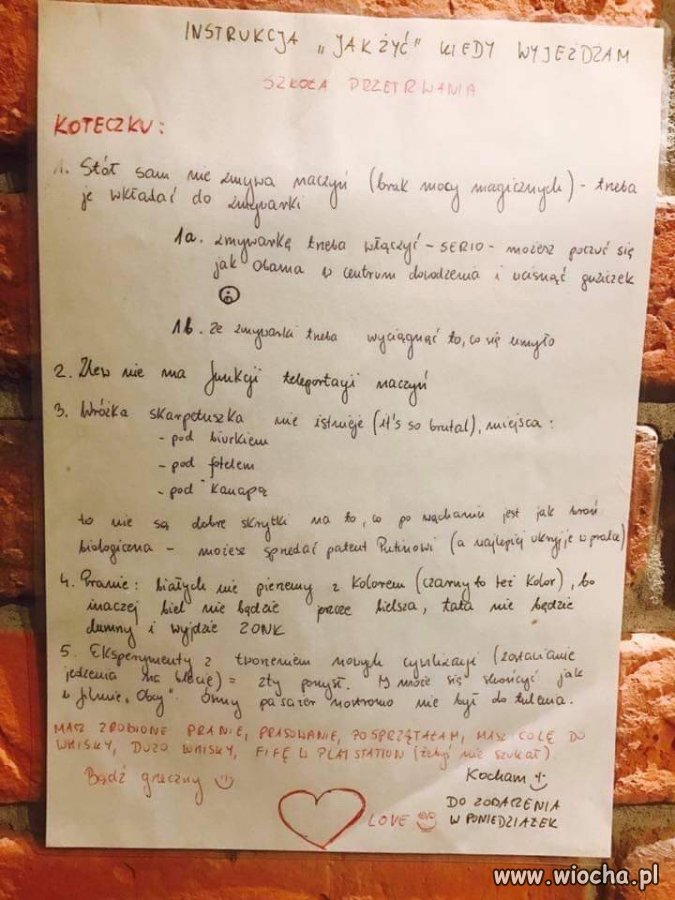 INSTRUKCJA „JAK ŻYĆ" KIEDY WYJEŻDŻAM
SZKOŁA PRZETRWANIA
KOTECZKU:
1. Stół sam nie zmywa naczyń (brak mocy magicznych) - trzeba
je wkładać do zmywarki
1a. Zmywarkę trzeba włączyć - SERIO - możesz poczuć się
jak Obama w centrum dowodzenia i wcisnąć guziczek
1b. Ze zmywarki trzeba wyciągnąć to, co się umyło
2. Zlew nie ma funkcji teleportacji naczyń
3. Wróżka skarpetuszka nie istnieje (it's so brutal), miejsca:
- pod biurkiem
- pod fotelem
- pod kanapą
to nie są dobre skrytki na to, co po wąchaniu jest jak broń
biologiczna - możesz sprzedać patent Putinowi (a najlepiej ukryj je w pralce)
4. Pranie: białych nie pierzemy z kolorem (czarny to też kolor), bo
inaczej biel nie będzie bielsza, tata nie będzie
dumny i wyjdzie ZONK
5. Eksperymenty z tworzeniem nowych cywilizacji (zostawianie
jedzenia na blacie) = zły pomysł. może się skończyć jak
w filmie „Obcy". Ósmy pasażer Nostromo nie był do tulenia.
MASZ ZROBIONE PRANIE, PRASOWANIE, POSPRZĄTAŁAM, MASZ COLĘ DO
WHISKY, DUŻO WHISKY, FIFĘ W PLAYSTATION (żebyś nie szukał)
Bądź grzeczny
Kocham
LOVE
DO ZOBACZENIA
W PONIEDZIAŁEK
www.wiocha.pl